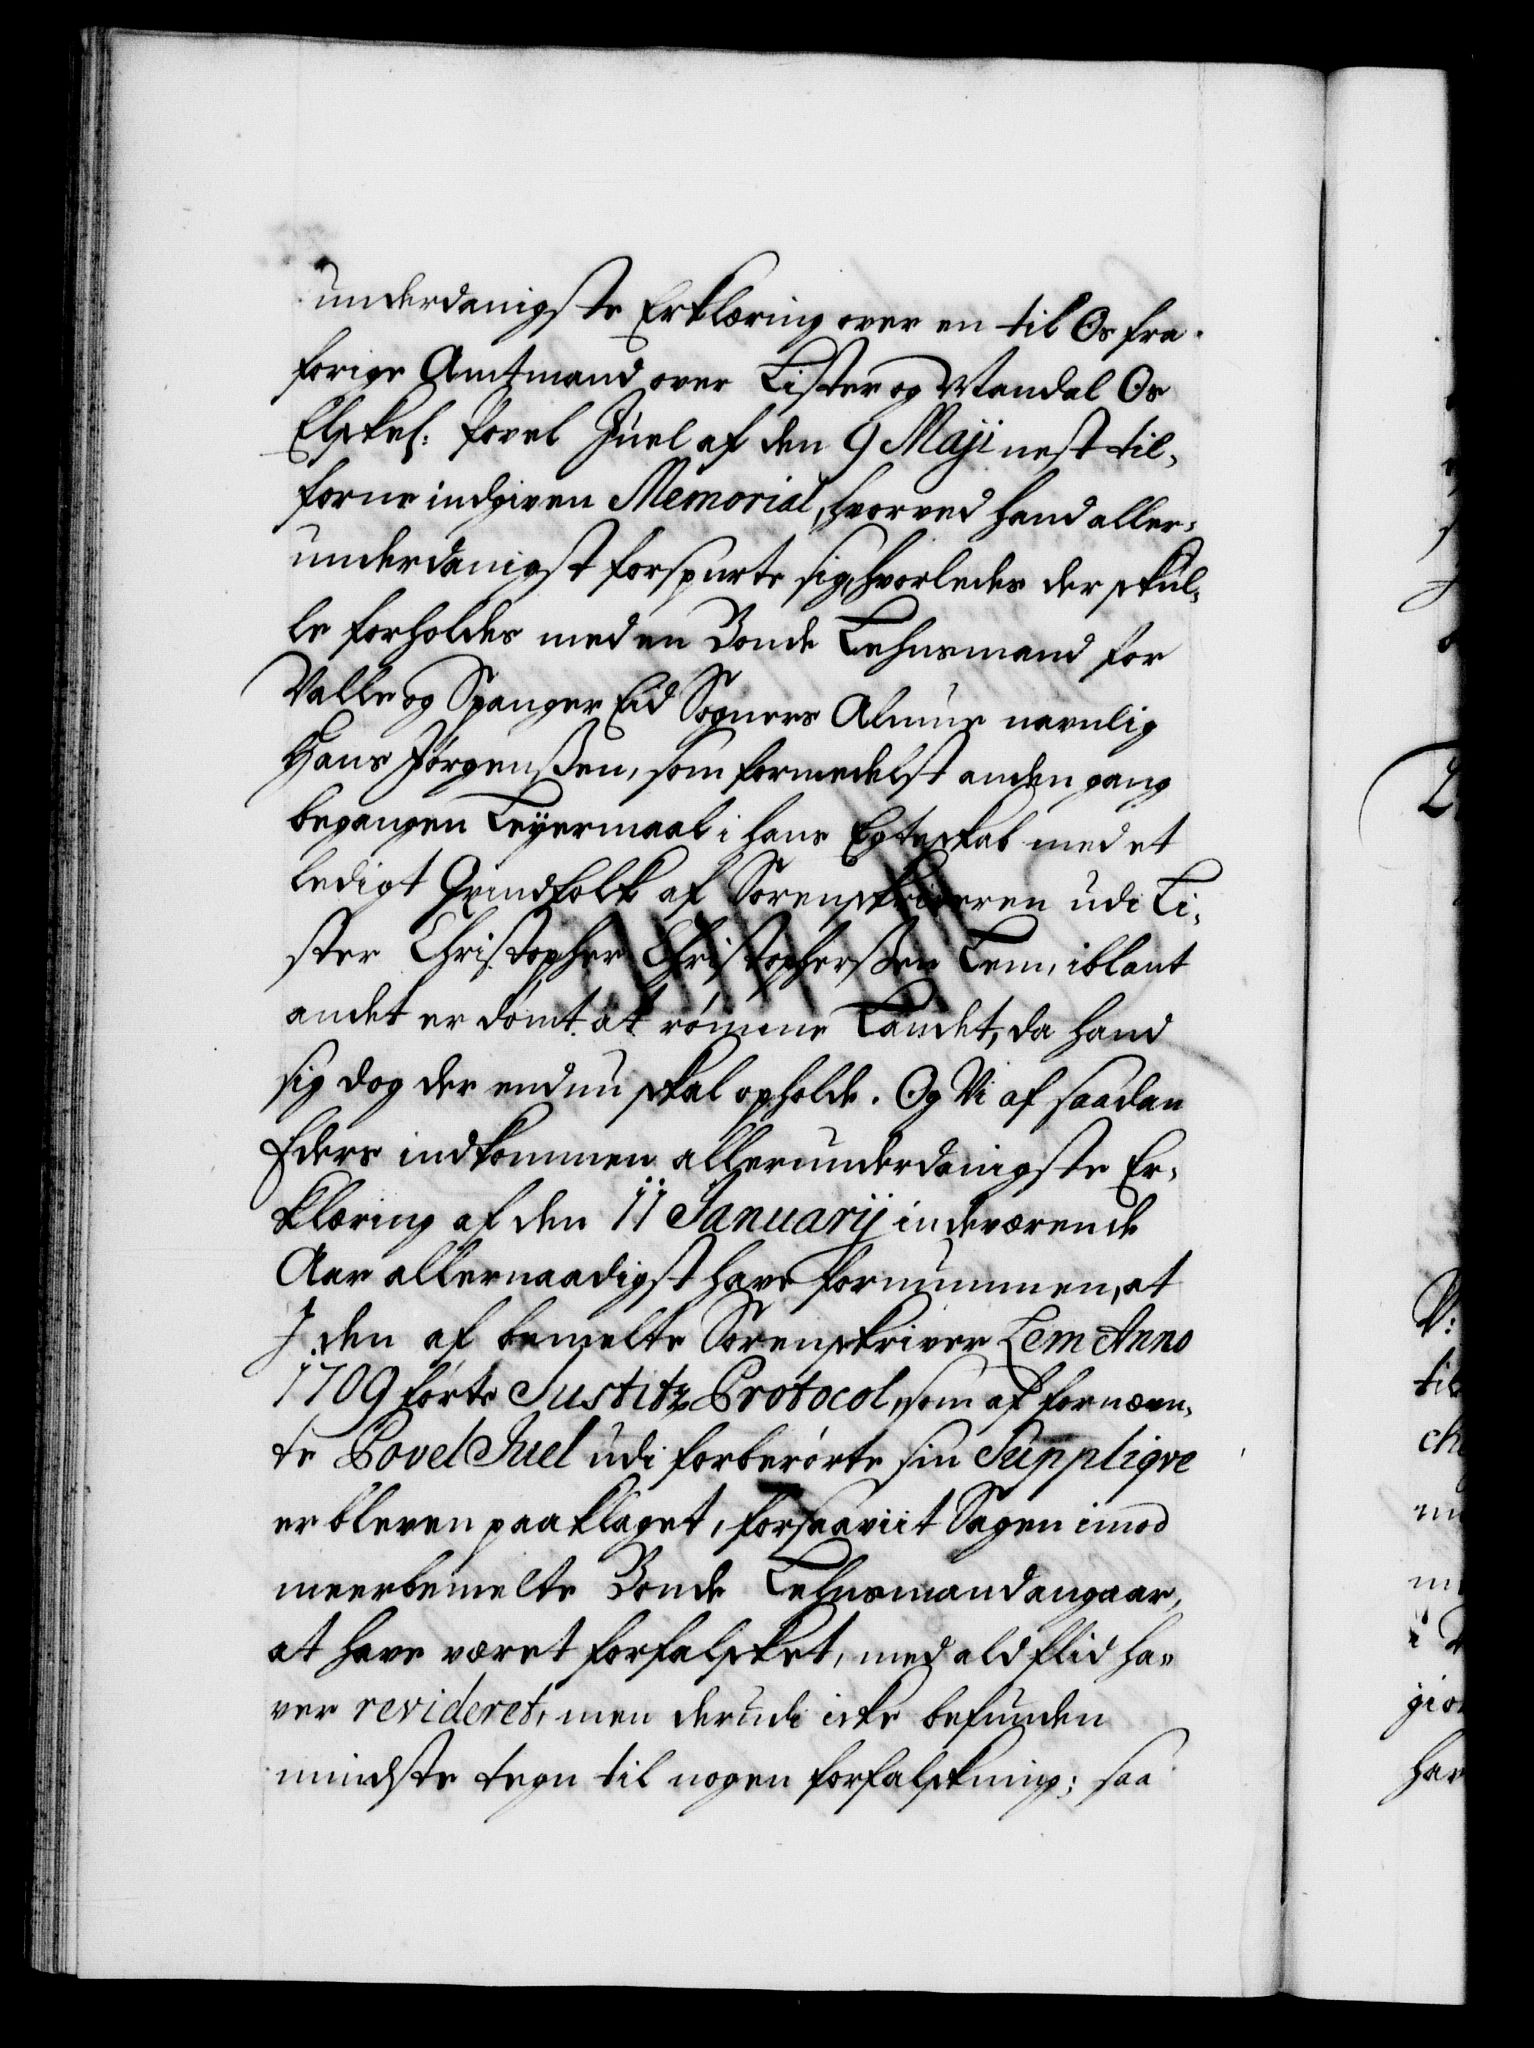 underdanigste Erklæring over en til Os fra
forige Amtmand over Lister og Mandal Os
Elskel: Povel Juel af den 9 Maji nest til,
forne indgiven Memorial, hvorved hand aller,
underdanigst forspurte sig, hvorledes der skul,
le forholdes med en Bonde Lehnsmand for
Valle og Spanger Eid Sogners Almue navnlig
Hans Jörgenssen, som formedelst anden gang
begangen Leyermaal i hans Egteskab med et
ledigt Qvindfolk af Sorenskriveren udi Li,
ster Christopher Christopherssen Lem, iblant
andet er dömt at römme Landet, da hand
sig dog der endnu skal opholde. Og Vi af saadan
Eders indkommen allerunderdanigste Er,
klæring af den 11 Januarij indeværende
Aar allernaadigst have fornummen, at
I den af bemelte Sorenskriver Lem Anno
1709 förte Justitz Protocol, som af fornævn,
te Povel Juel udi forberörte sin Suppliqve
er bleven paaklaget, forsaaviit Sagen imod
meerbemelte Bonde Lehnsmand angaar,
at have været forfalsket, med ald flid ha,
ver revideret, men derudi icke befunden
mindste tegn til nogen forfalskning; saa